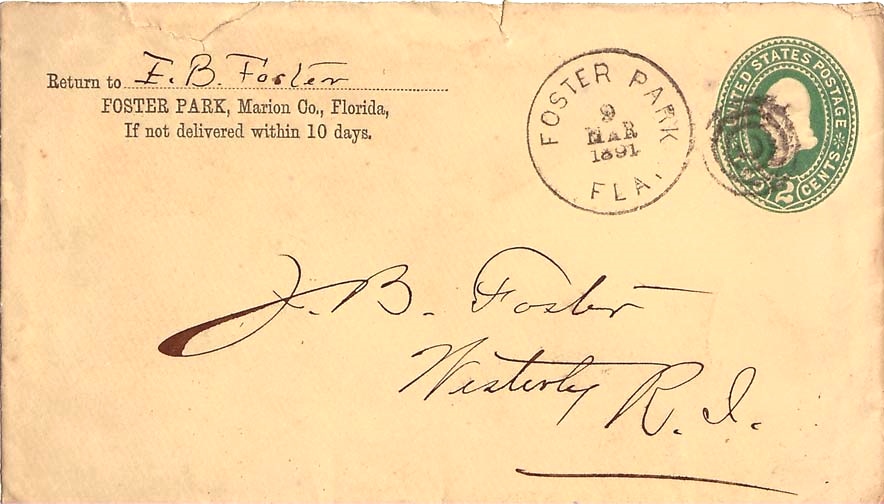 Return to E. B. Foster
FOSTER PARK, Marion Co., Florida,
If not delivered within 10 days.
FOSTER PARK
9
MAR
1891
FLA.
UNITED STATES POSTAGE
TWO 2 CENTS
J. B. Foster
Westerly R. I.